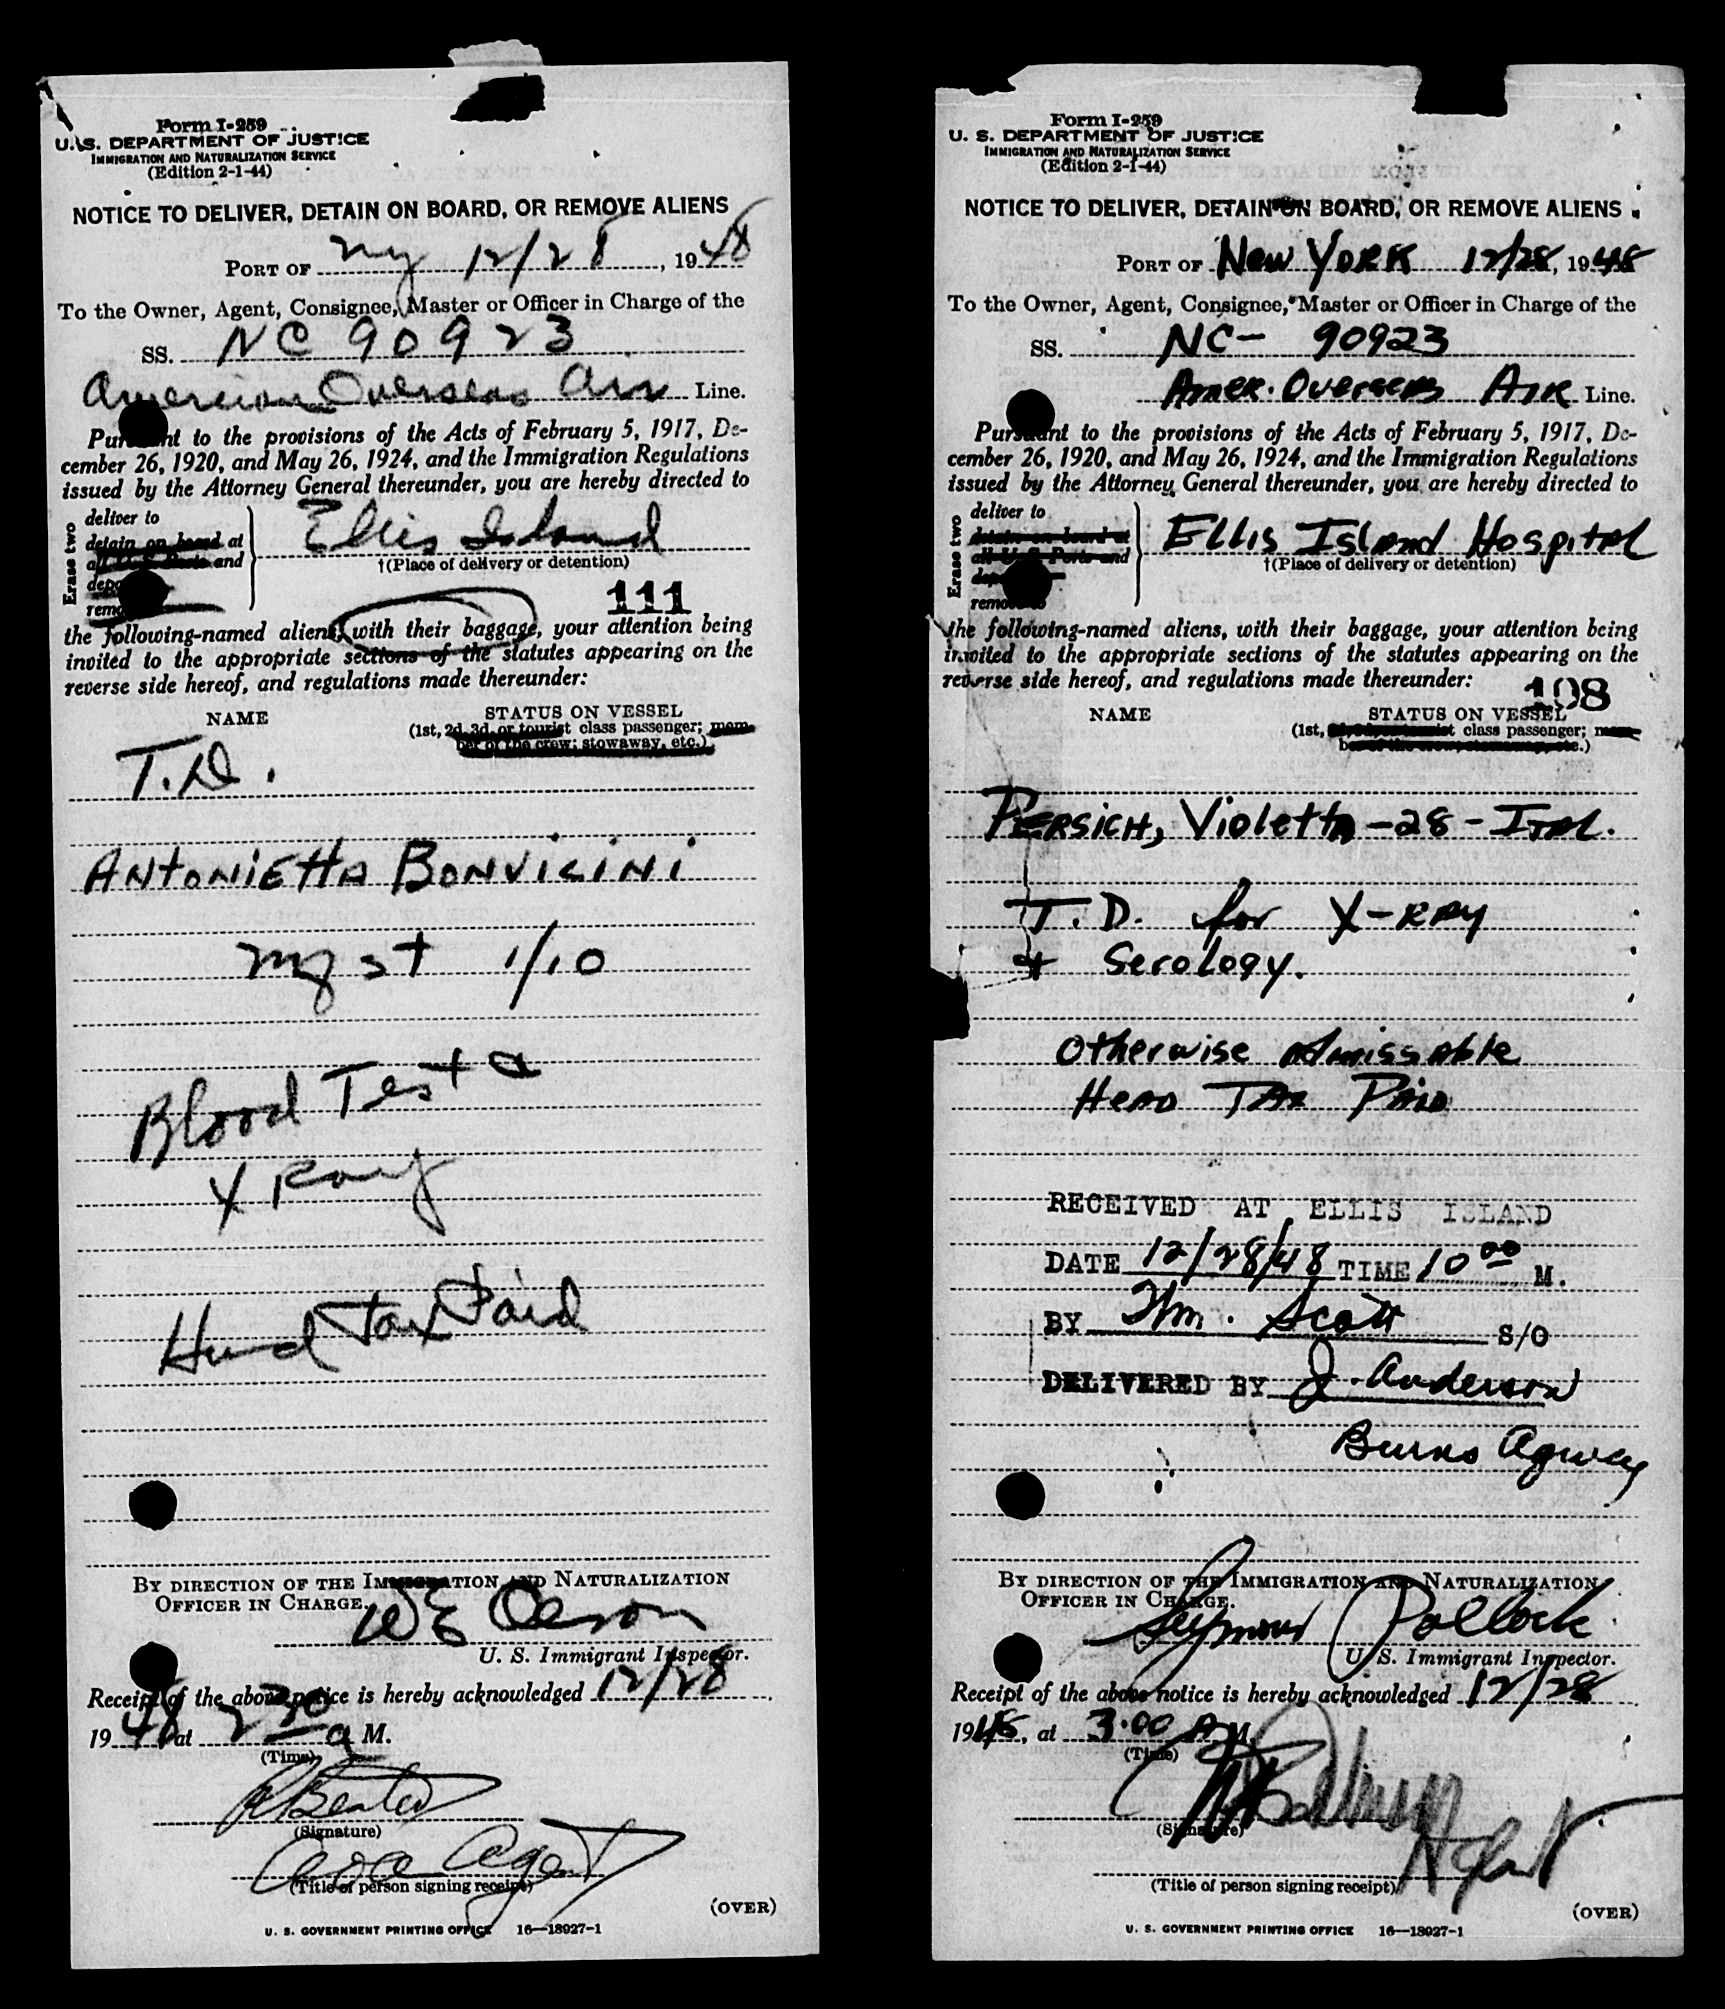 Form I-259
U. S. DEPARTMENT OF JUSTICE
IMMIGRATION AND NATURALIZATION SERVICE
(Edition 2-1-44)
NOTICE TO DELIVER, DETAIN ON BOARD, OR REMOVE ALIENS
PORT OF NY 12/28, 1948
To the Owner, Agent, Consignee, Master or Officer in Charge of the
SS. NC 90923
American Overseas Air Line.
Pursuant to the provisions of the Acts of February 5, 1917, De-
cember 26, 1920, and May 26, 1924, and the Immigration Regulations
issued by the Attorney General thereunder, you are hereby directed to
Erase two
deliver to
detain on board at
all U. S. Ports and
remove
Ellis Island
†(Place of delivery or detention)
111
the following-named aliens, with their baggage, your attention being
invited to the appropriate sections of the statutes appearing on the
reverse side hereof, and regulations made thereunder:
NAME STATUS ON VESSEL
(1st, 2d, 3d, or tourist class passenger; mem-
ber of the crew; stowaway, etc.)
T.D.
ANTONIETTA BONVICINI
1/10
Blood Test &
X Ray
Head Tax Paid
BY DIRECTION OF THE IMMIGRATION AND NATURALIZATION
OFFICER IN CHARGE.
WE Olson
U. S. Immigrant Inspector.
Receipt of the above notice is hereby acknowledged 12/28,
1948 at 2 30 a M.
(Time)
(Signature)
aoa Agent
(Title of person signing receipt)
(OVER)
U. S. GOVERNMENT PRINTING OFFICE 16—18027-1
Form I-259
U. S. DEPARTMENT OF JUSTICE
IMMIGRATION AND NATURALIZATION SERVICE
(Edition 2-1-44)
NOTICE TO DELIVER, DETAIN ON BOARD, OR REMOVE ALIENS
PORT OF New YORK 12/28, 1948
To the Owner, Agent, Consignee, Master or Officer in Charge of the
SS. NC- 90923
AmeR. Overseas AIR Line.
Pursuant to the provisions of the Acts of February 5, 1917, De-
cember 26, 1920, and May 26, 1924, and the Immigration Regulations
issued by the Attorney General thereunder, you are hereby directed to
Erase two
deliver to
detain on board at
all U. S. Ports and
remove to
Ellis Island Hospital
†(Place of delivery or detention)
the following-named aliens, with their baggage, your attention being
invited to the appropriate sections of the statutes appearing on the
reverse side hereof, and regulations made thereunder:
108
NAME STATUS ON VESSEL
(1st, class passenger; mem-
ber of the crew; stowaway, etc.)
PERSICH, Violetta - 28 - ITAL.
T.D. for X-RAY
+ Serology.
Otherwise Admissable
Head TAX PAID
RECEIVED AT ELLIS ISLAND
DATE 12/28/48 TIME 10 00 M.
BY Wm. Scott S/O
DELIVERED BY J. Anderson
Burns Agency
BY DIRECTION OF THE IMMIGRATION AND NATURALIZATION
OFFICER IN CHARGE.
Seymour Pollock
U. S. Immigrant Inspector.
Receipt of the above notice is hereby acknowledged 12/28,
1948, at 3:00 A M.
(Time)
(Signature)
Agent
(Title of person signing receipt)
(OVER)
U. S. GOVERNMENT PRINTING OFFICE 16—18027-1